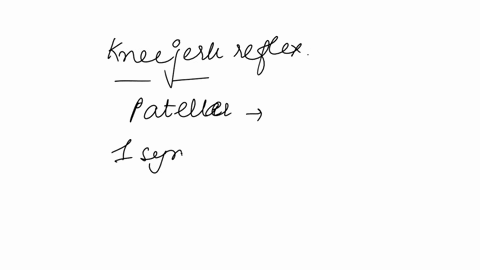 Kneejerk reflex.
Patellar →
1 syn